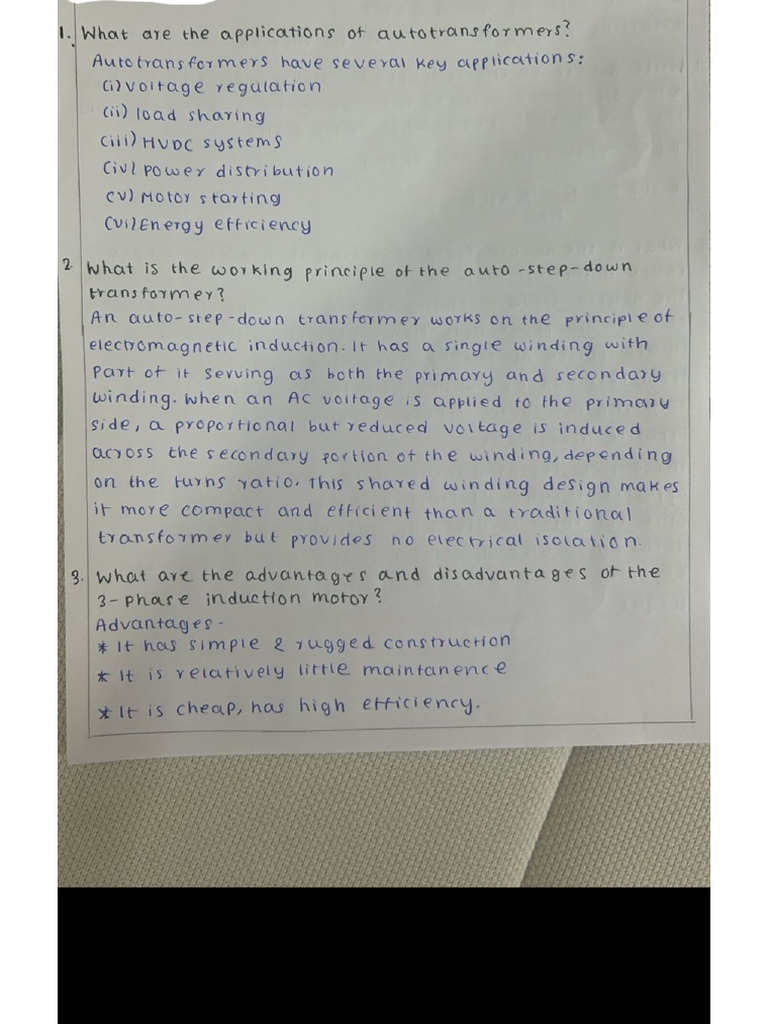 1. What are the applications of autotransformers?
Autotransformers have several key applications:
(i) voltage regulation
(ii) load sharing
(iii) HVDC systems
(iv) Power distribution
(v) Motor starting
(vi) Energy efficiency
2 What is the working principle of the auto-step-down
transformer?
An auto-step-down transformer works on the principle of
electromagnetic induction. It has a single winding with
Part of it serving as both the primary and secondary
winding. When an AC voltage is applied to the primary
side, a proportional but reduced voltage is induced
across the secondary portion of the winding, depending
on the turns ratio. This shared winding design makes
it more compact and efficient than a traditional
transformer but provides no electrical isolation.
3. What are the advantages and disadvantages of the
3-phase induction motor?
Advantages -
* It has simple & rugged construction
* It is relatively little maintanence
* It is cheap, has high efficiency.